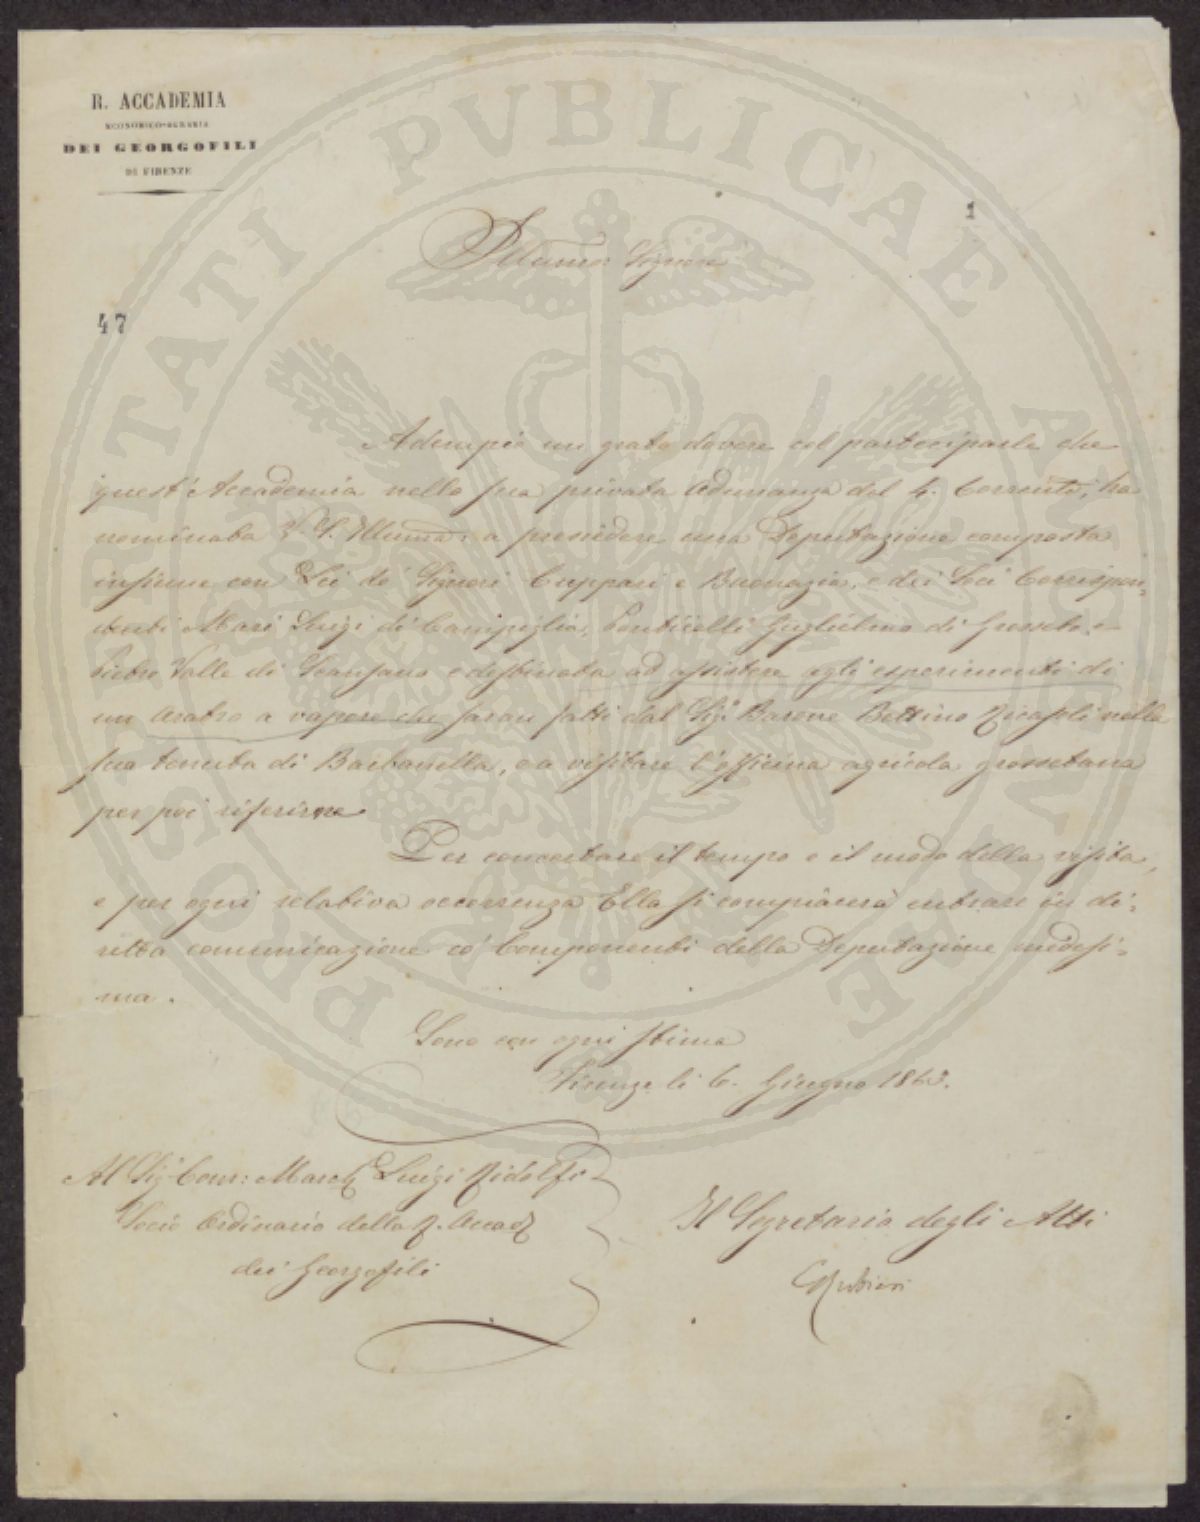 R. ACCADEMIA
ECONOMICO-AGRARIA
DEI GEORGOFILI
DI FIRENZE
1
Illumo: Signore
47
Adempio un grato dovere col parteciparle che
quest'Accademia nella sua privata adunanza del 4. Corrente, ha
nominata V. S. Illuma. a presiedere una Deputazione composta
insieme con Lei de' Signori Cuppari e Buonazia, e dei Soci Corrispon-
denti Mari Luigi di Campiglia, Ponticelli Guglielmo di Grosseto e
Pietro Valle di Scansano e destinata ad assistere agli esperimenti di
un aratro a vapore che saran fatti dal Sigr. Barone Bettino Ricasoli nella
sua tenuta di Barbanella, e a visitare l'officina agricola grossetana
per poi riferirne
Per concertare il tempo e il modo della visita,
e per ogni relativa occorrenza Ella si compiacerà entrare in di-
retta comunicazione co' Componenti della Deputazione medesi-
ma.
Sono con ogni stima
Firenze li 6. Giugno 1863.
Al Sig. Com: March. Luigi Ridolfi
Socio Ordinario della R. Accad.
dei Georgofili
Il Segretario degli Atti
CRubieri
PROSPERITATI PVBLICAE AVGENDAE